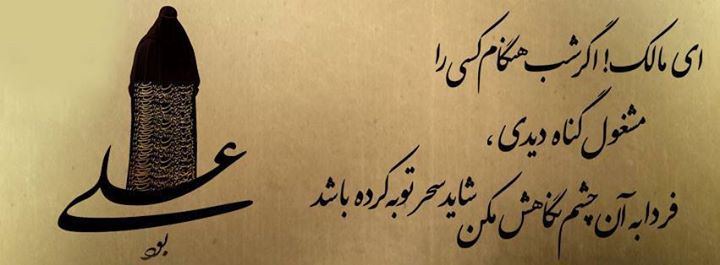 ای مالک! اگر شب هنگام کسی را
مشغول گناه دیدی،
فردا به آن چشم نگاهش مکن شاید سحر توبه کرده باشد
علی
بود